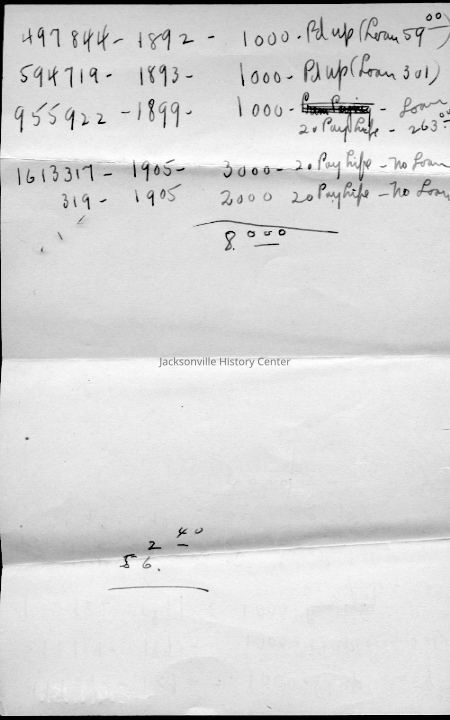 497844 - 1892 - 1000 - Pd up (Loan 59 00
594719 - 1893 - 1000 - Pd up (Loan 301)
955922 - 1899 - 1000 - Loan
20 Pay Life - 263.00
1613317 - 1905 - 3000 - 20 Pay Life - No Loan
319 - 1905 2000 20 Pay Life - No Loan
8.000
Jacksonville History Center
2 40
56.